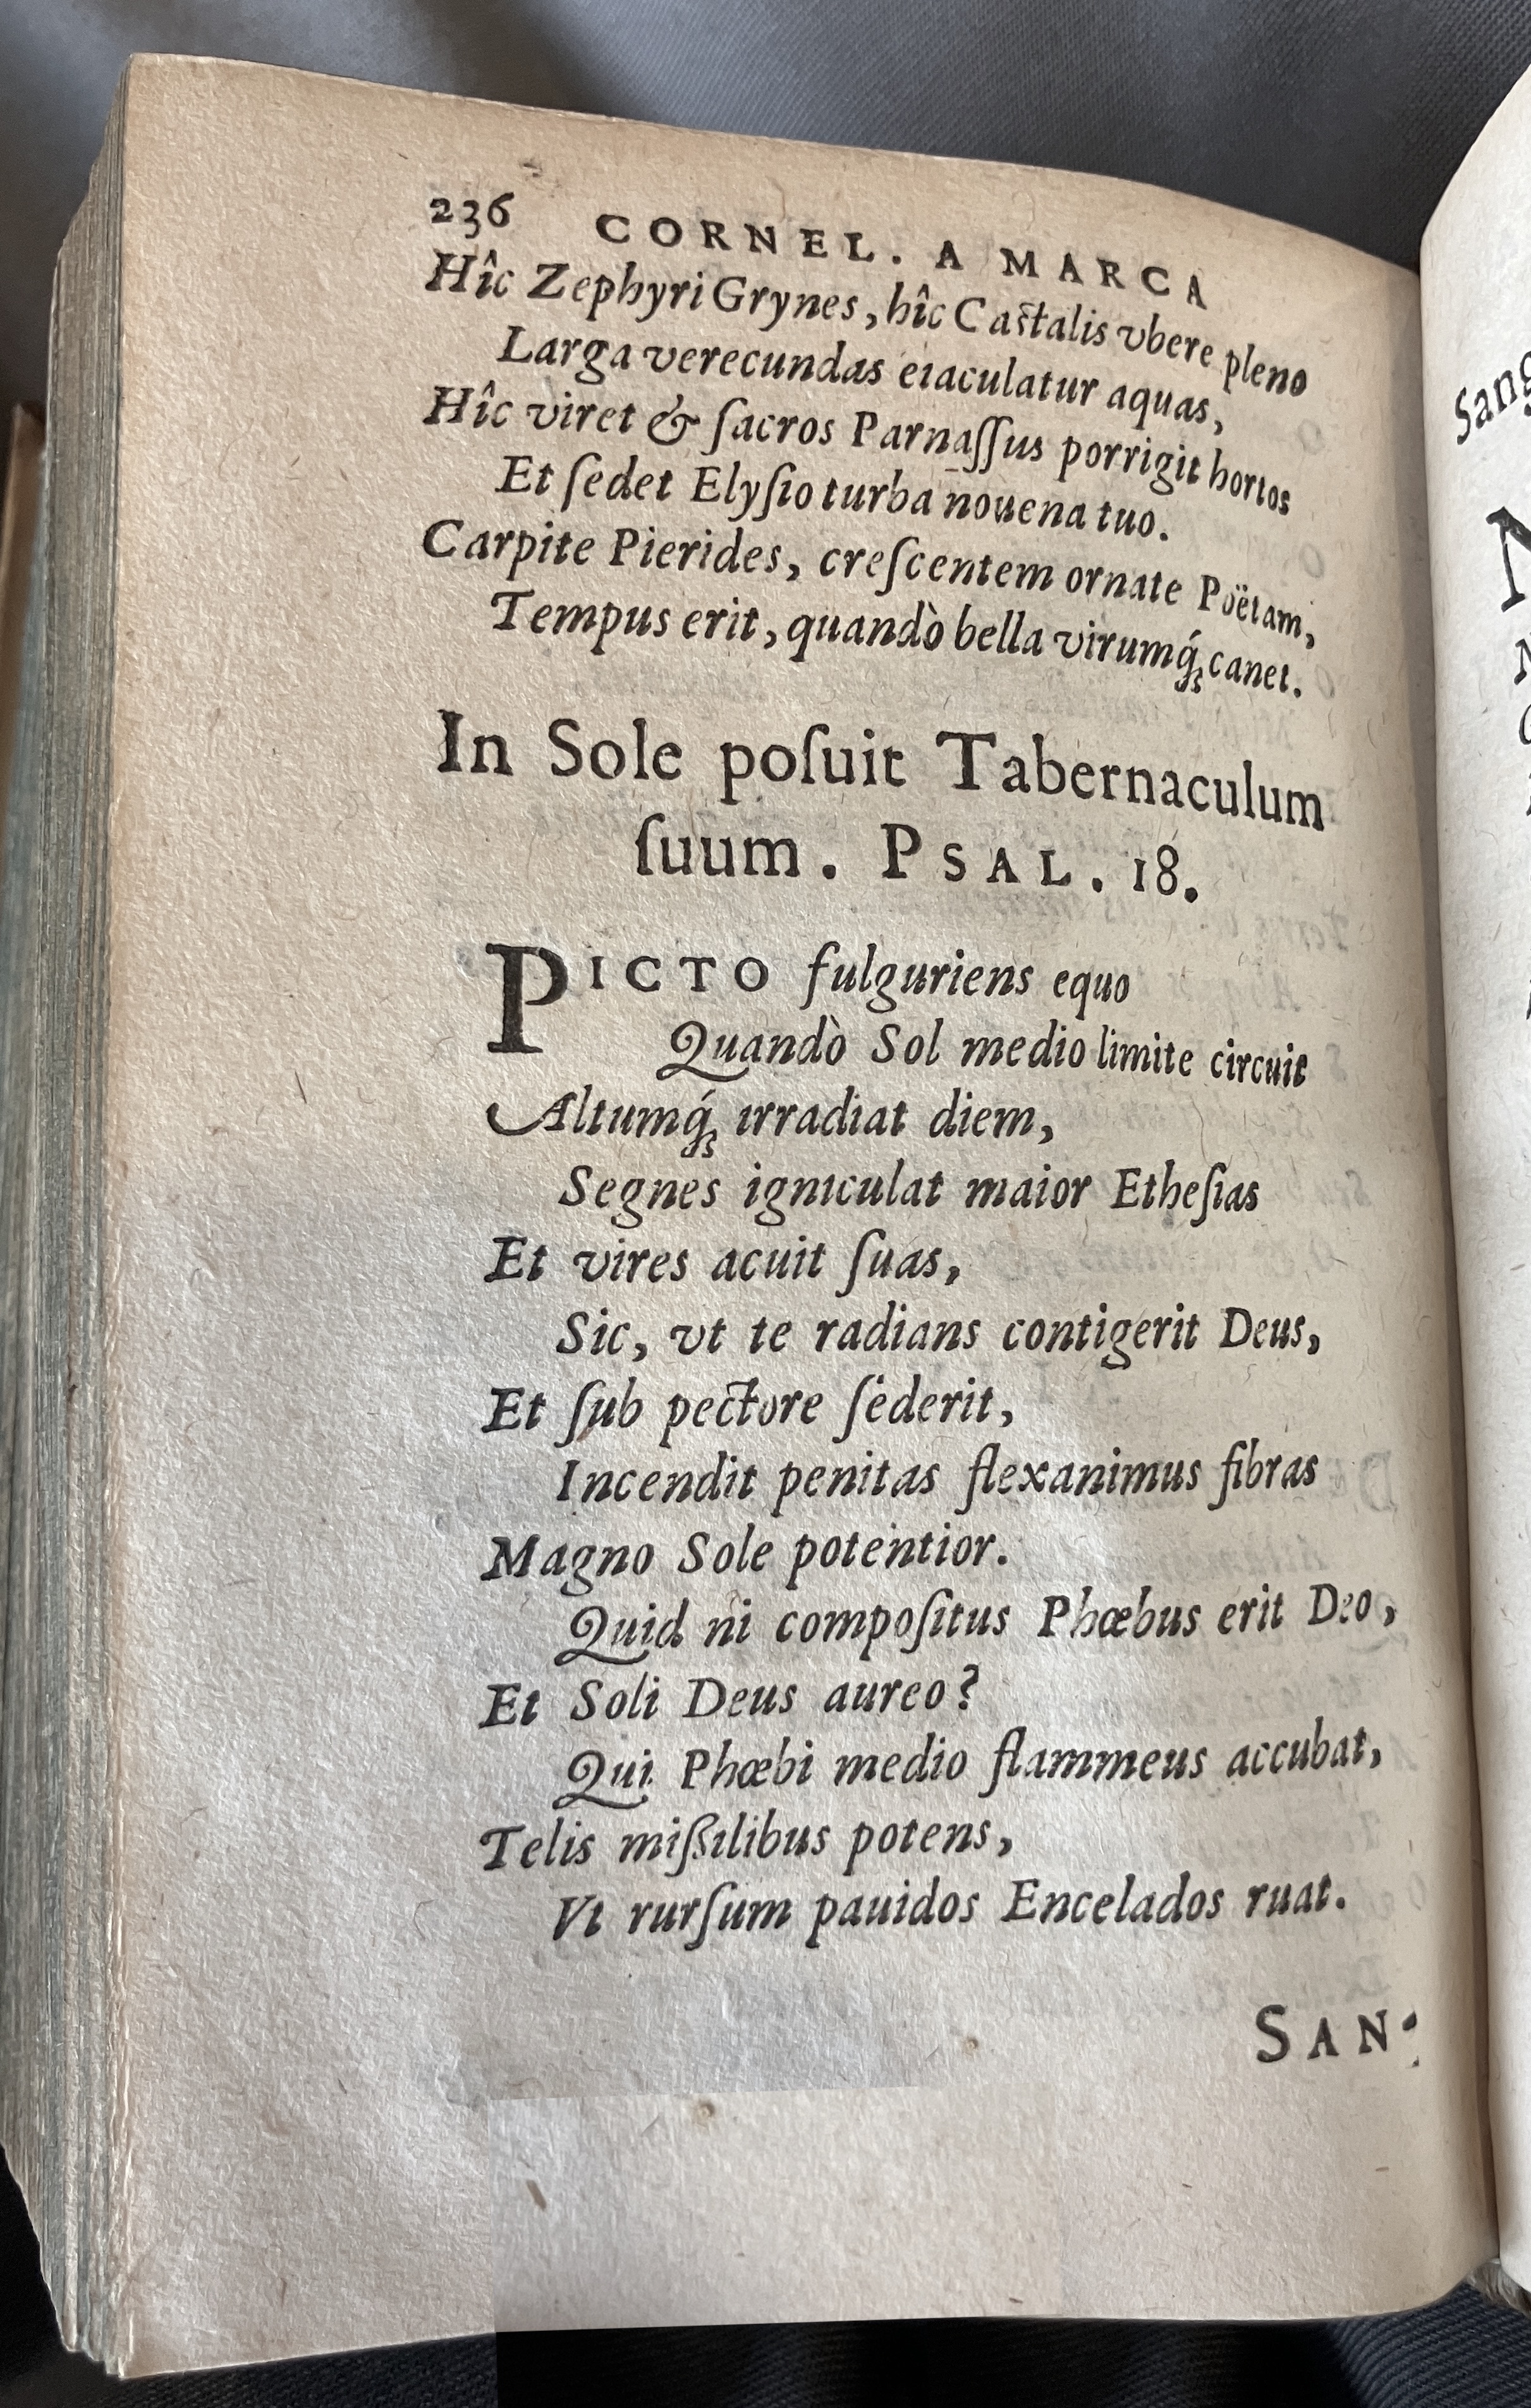 236 CORNEL. A MARCA
Hîc Zephyri Grynes, hîc Caſtalis vbere pleno
Larga verecundas eiaculatur aquas,
Hîc viret & ſacros Parnaſſus porrigit hortos
Et ſedet Elyſio turba nouena tuo.
Carpite Pierides, creſcentem ornate Poëtam,
Tempus erit, quandò bella virumq́ꝫ canet.
In Sole poſuit Tabernaculum
ſuum. PSAL. 18.
PICTO fulguriens equo
Quandò Sol medio limite circuit
Altumq́ꝫ irradiat diem,
Segnes igniculat maior Etheſias
Et vires acuit ſuas,
Sic, vt te radians contigerit Deus,
Et ſub pectore ſéderit,
Incendit penitas flexanimus fibras
Magno Sole potentior.
Quid ni compoſitus Phœbus erit Deo,
Et Soli Deus aureo?
Qui Phœbi medio flammeus accubat,
Telis mißilibus potens,
Vt rurſum pauidos Encelados ruat.
SAN-
Sang